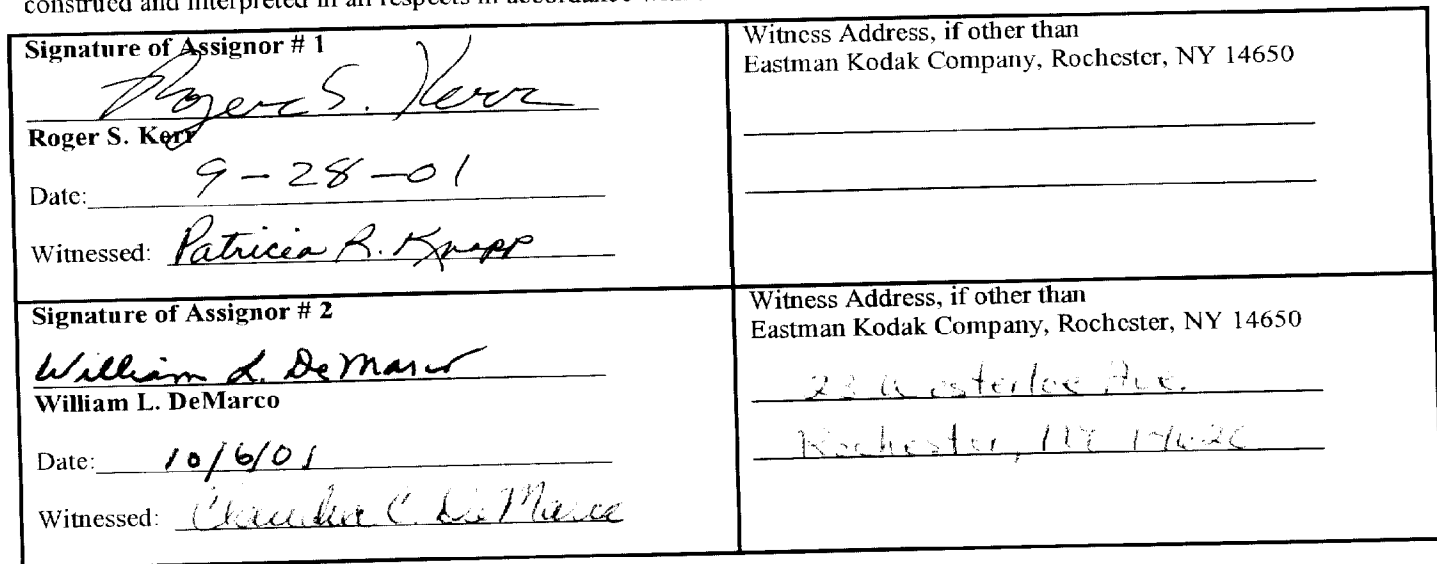 construed and interpreted in all respects in accordance
Signature of Assignor # 1
Roger S. Kerr
Roger S. Kerr
Date: 9-28-01
Witnessed: Patricia R. Knapp
Witness Address, if other than
Eastman Kodak Company, Rochester, NY 14650
Signature of Assignor # 2
William L. DeMarco
William L. DeMarco
Date: 10/6/01
Witnessed: Claudia C. DeMarco
Witness Address, if other than
Eastman Kodak Company, Rochester, NY 14650
Westerloe Ave.
Rochester, NY